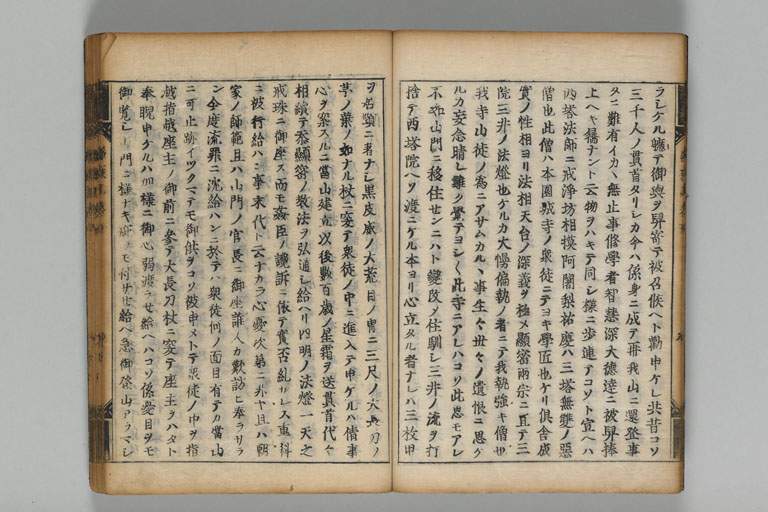 ラシケル轅テ御輿ヲ舁寄テ被召候ヘト勸申ケレ共昔コソ
三千人ノ貫首タリシカ今ハ係身ニ成テ再我山ニ還登事
タニ難有イカヽ無止事修學者智慧深大德達ニ被舁捧
上ヘキ鞴ナント云物ヲハキテ同シ樣ニ歩連テコソト宣ヘハ
西塔法師ニ戒淨坊相摸阿闍梨祐慶ハ三塔無雙ノ惡
僧也此僧ハ本園城寺ノ衆徒ニテヨキ學匠也ケリ倶舎成
實ノ性相ヨリ法相天台ノ深義ヲ極メ顯密兩宗ニ亘テ三
院三井ノ法燈也ケルカ大憍偏執ノ者ニテ我執強キ僧也
我寺山徒ノ爲ニアサムカルヽ事生々世々ノ遺恨ニ思ケ
ルカ妄念晴レ難ク覺テヨシ〱此寺ニアレハコソ此思モアレ
不如山門ニ移住センニハト變改メ住馴シ三井ノ流ヲ打
捨テ西塔院ヘソ渡ニケル本ヨリ心立タル者ナレハ三枚甲
ヲ居頸ニ着ナシ黒皮威ノ大荒目ノ冑ニ三尺ノ大長刀ノ
茅ノ葉ノ如ナル杖ニ突テ衆徒ノ中ニ進入テ申ケルハ倩事
心ヲ案スルニ當山建立以後數百歳ノ星霜ヲ送貫首代々
相續テ忝顯密ノ敎法ヲ弘通シ給ヘリ四明ノ法燈一天之
戒珠ニ御座ス而モ姦臣ノ讒訴ニ依テ實否糺サレス重科
ニ被行給ハン事末代ト云ナカラ心憂次第ニ非ヤ且ハ朝
家ノ師範且ハ山門ノ官長ニ御座誰人カ歎訪ヒ奉ラサラ
ン今度流罪ニ沈給ハンニ於テハ衆徒何ノ面目有テカ當山
ニ可止跡イツクマテモ御供ヲコソ被申メトテ衆徒ノ中ヲ指
越指越座主ノ御前ニ參テ大長刀杖ニ突テ座主ヲハタト
奉睨申ケルハ加樣ニ御心弱渡ラセ給ヘハコソ係憂目ヲモ
御覽シ山門ニ樣ナキ瑕ヲモ付サセ給ヘ急御登山アラマシ